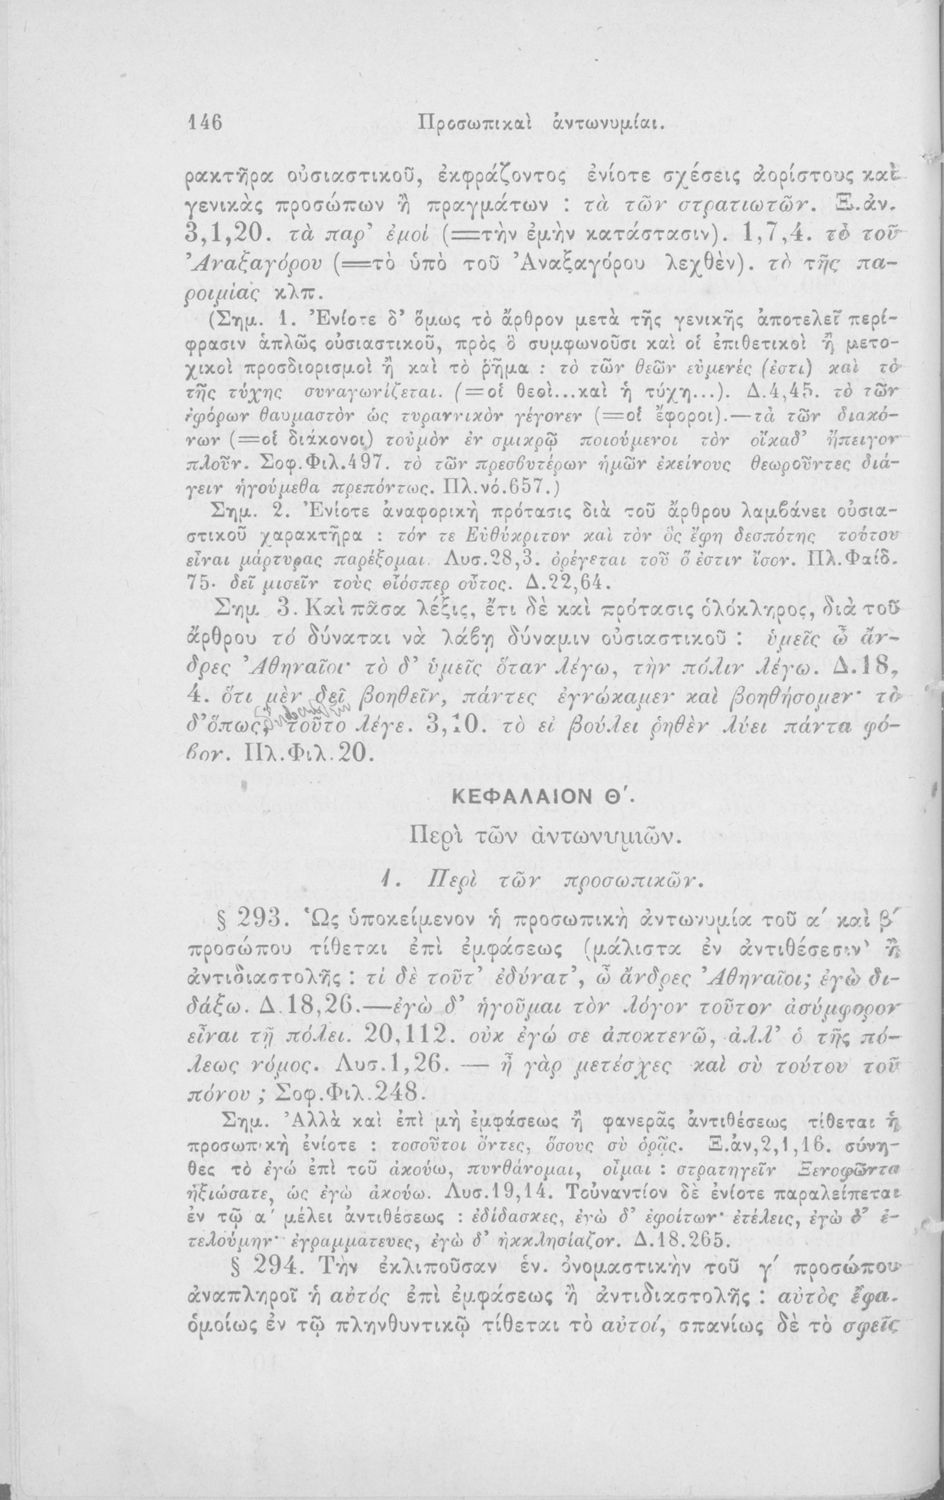 146 Προσωπικαὶ ἀντωνυμίαι.
ρακτῆρα οὐσιαστικοῦ, ἐκφράζοντος ἐνίοτε σχέσεις ἀορίστους καὶ
γενικὰς προσώπων ἢ πραγμάτων : τὰ τῶν στρατιωτῶν. Ξ.ἀν.
3,1,20. τὰ παρ' ἐμοί (=τὴν ἐμὴν κατάστασιν). 1,7,4. τὸ τοῦ
Ἀναξαγόρου (=τὸ ὑπὸ τοῦ Ἀναξαγόρου λεχθὲν). τὸ τῆς πα-
ροιμίας κλπ.
(Σημ. 1. Ἐνίοτε δ' ὅμως τὸ ἄρθρον μετὰ τῆς γενικῆς ἀποτελεῖ περί-
φρασιν ἁπλῶς οὐσιαστικοῦ, πρὸς ὃ συμφωνοῦσι καὶ οἱ ἐπιθετικοὶ ἢ μετο-
χικοὶ προσδιορισμοὶ ἢ καὶ τὸ ῥῆμα : τὸ τῶν θεῶν εὐμενές (ἐστι) καὶ τὸ
τῆς τύχης συναγωνίζεται. (=οἱ θεοὶ...καὶ ἡ τύχη...). Δ.4,45. τὸ τῶν
ἐφόρων θαυμαστὸν ὡς τυραννικὸν γέγονεν (=οἱ ἔφοροι).—τὰ τῶν διακό-
νων (=οἱ διάκονοι) τοὐμὸν ἐν σμικρῷ ποιούμενοι τὸν οἴκαδ' ἤπειγον
πλοῦν. Σοφ.Φιλ.497. τὸ τῶν πρεσβυτέρων ἡμῶν ἐκείνους θεωροῦντες διά-
γειν ἡγούμεθα πρεπόντως. Πλ.νό.657.)
Σημ. 2. Ἐνίοτε ἀναφορικὴ πρότασις διὰ τοῦ ἄρθρου λαμβάνει οὐσια-
στικοῦ χαρακτῆρα : τόν τε Εὐθύκριτον καὶ τὸν ὃς ἔφη δεσπότης τούτου
εἶναι μάρτυρας παρέξομαι. Λυσ.28,3. ὀρέγεται τοῦ ὅ ἐστιν ἴσον. Πλ.Φαίδ.
75. δεῖ μισεῖν τοὺς οἷόσπερ οὗτος. Δ.22,64.
Σημ. 3. Καὶ πᾶσα λέξις, ἔτι δὲ καὶ πρότασις ὁλόκληρος, διὰ τοῦ
ἄρθρου τό δύναται νὰ λάβῃ δύναμιν οὐσιαστικοῦ : ὑμεῖς ὦ ἄν-
δρες Ἀθηναῖοι· τὸ δ' ὑμεῖς ὅταν λέγω, τὴν πόλιν λέγω. Δ.18,
4. ὅτι μὲν δεῖ βοηθεῖν, πάντες ἐγνώκαμεν καὶ βοηθήσομεν· τὸ
δ' ὅπως, τοῦτο λέγε. 3,10. τὸ εἰ βούλει ῥηθὲν λύει πάντα φό-
βον. Πλ.Φιλ.20.
ΚΕΦΑΛΑΙΟΝ Θ'.
Περὶ τῶν ἀντωνυμιῶν.
1. Περὶ τῶν προσωπικῶν.
§ 293. Ὡς ὑποκείμενον ἡ προσωπικὴ ἀντωνυμία τοῦ α' καὶ β'
προσώπου τίθεται ἐπὶ ἐμφάσεως (μάλιστα ἐν ἀντιθέσεσιν) ἢ
ἀντιδιαστολῆς : τί δὲ τοῦτ' ἐδύνατ', ὦ ἄνδρες Ἀθηναῖοι; ἐγὼ δι-
δάξω. Δ.18,26.—ἐγὼ δ' ἡγοῦμαι τὸν λόγον τοῦτον ἀσύμφορον
εἶναι τῇ πόλει. 20,112. οὐκ ἐγώ σε ἀποκτενῶ, ἀλλ' ὁ τῆς πό-
λεως νόμος. Λυσ.1,26. — ἦ γὰρ μετέσχες καὶ σὺ τούτου τοῦ
πόνου ; Σοφ.Φιλ.248.
Σημ. Ἀλλὰ καὶ ἐπὶ μὴ ἐμφάσεως ἢ φανερᾶς ἀντιθέσεως τίθεται ἡ
προσωπικὴ ἐνίοτε : τοσοῦτοι ὄντες, ὅσους σὺ ὁρᾷς. Ξ.ἀν,2,1,16. σύνη-
θες τὸ ἐγώ ἐπὶ τοῦ ἀκούω, πυνθάνομαι, οἶμαι : στρατηγεῖν Ξενοφῶντα
ἠξιώσατε, ὡς ἐγὼ ἀκούω. Λυσ.19,14. Τοὐναντίον δὲ ἐνίοτε παραλείπεται
ἐν τῷ α' μέλει ἀντιθέσεως : ἐδίδασκες, ἐγὼ δ' ἐφοίτων· ἐτέλεις, ἐγὼ δ' ἐ-
τελούμην· ἐγραμμάτευες, ἐγὼ δ' ἠκκλησίαζον. Δ.18.265.
§ 294. Τὴν ἐκλιποῦσαν ἑν. ὀνομαστικὴν τοῦ γ' προσώπου
ἀναπληροῖ ἡ αὐτός ἐπὶ ἐμφάσεως ἢ ἀντιδιαστολῆς : αὐτὸς ἔφα.
ὁμοίως ἐν τῷ πληνθυντικῷ τίθεται τὸ αὐτοί, σπανίως δὲ τὸ σφεῖς